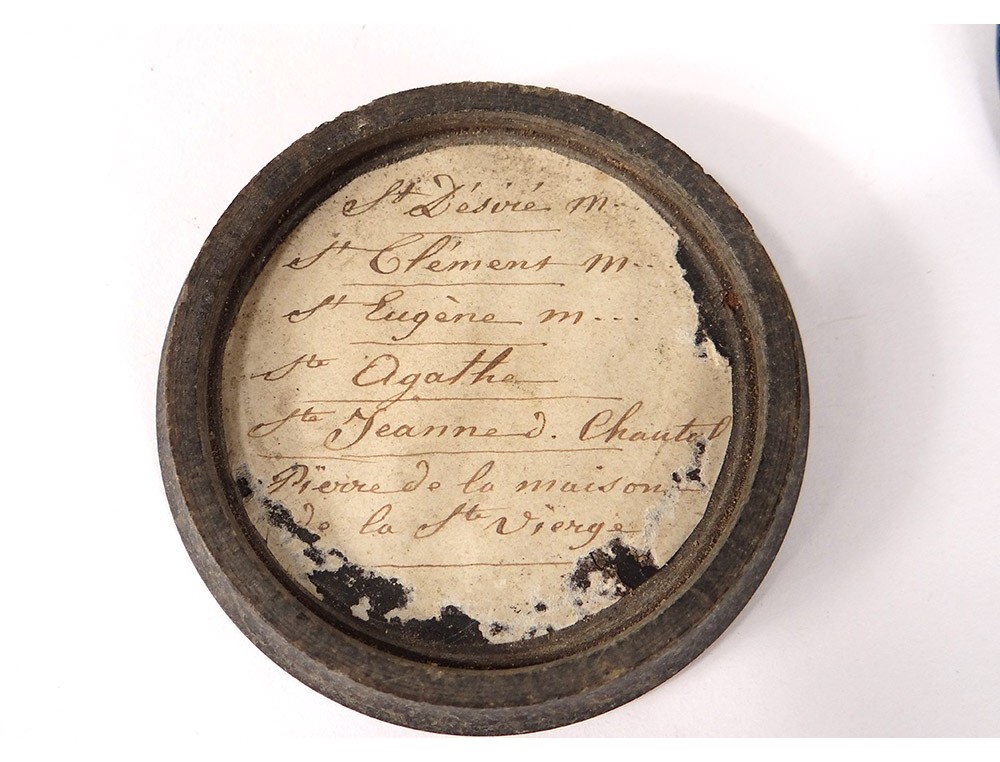 St Désiré m.
St Clément m...
St Eugène m...
Ste Agathe
Ste Jeanne d. Chautal
Pierre de la maison
de la Ste Vierge